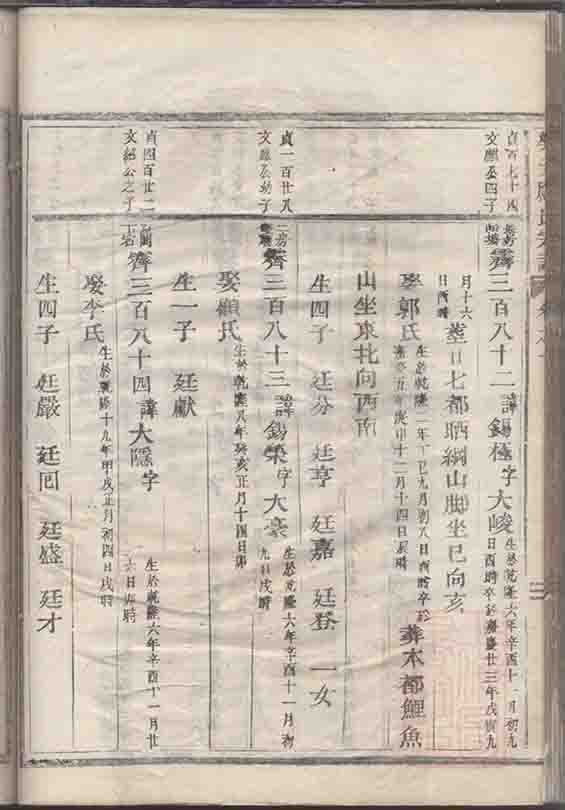 貞百七十四
文顯公四子
齊三百八十二 諱錫極 字大峻
生於乾隆六年辛酉十一月初九
日酉時卒於嘉慶廿三年戊寅九
月十六
日酉時
塟七都晒網山脚坐巳向亥
娶郭氏
生於乾隆二年丁巳九月初八日酉時卒於
十二月十四日辰時
葬本都鯉魚
山坐東北向西南
生四子 廷分 廷亨 廷嘉 廷登 一女
貞一百廿八
文顯公幼子
齊三百八十三 諱錫榮 字大豪
生於乾隆六年辛酉十一月初
九日戌時
娶顧氏
生於乾隆八年癸亥正月十四日卯
生一子 廷獻
貞四百廿二
文紹公之子
齊三百八十四 諱大隱 字
生於乾隆六年辛酉十一月廿
六日卯時
娶李氏
生於乾隆十九年甲戌正月初四日戌時
生四子 廷嚴 廷回 廷盛 廷才